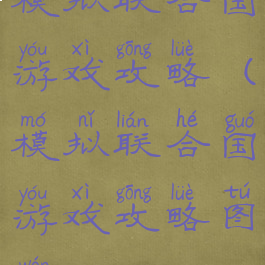 模拟联合国
yóu xì gōng lüè
游戏攻略（
mó nǐ lián hé guó
模拟联合国
yóu xì gōng lüè tú
游戏攻略图